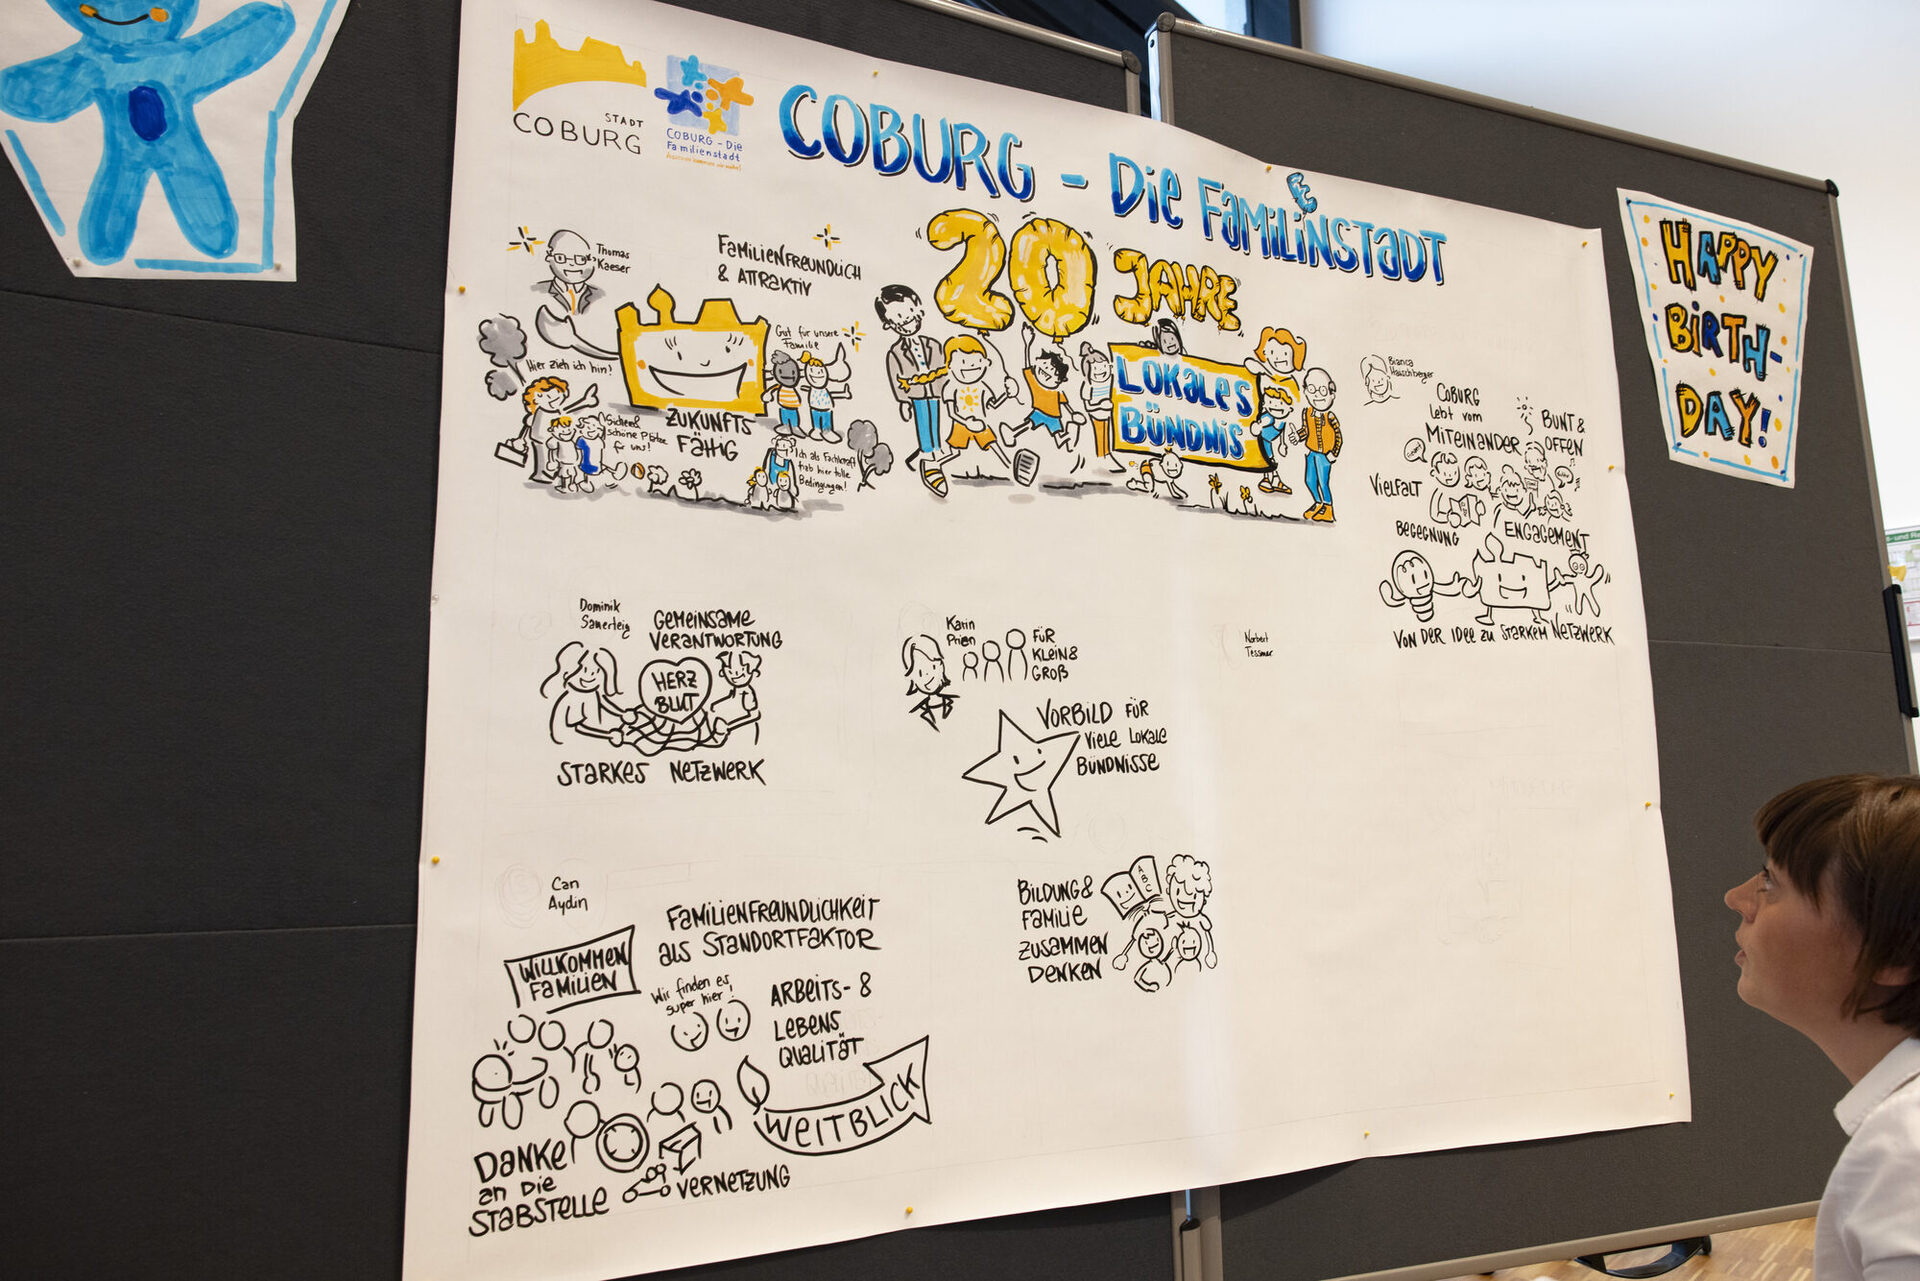 STADT
COBURG
COBURG - Die
Familienstadt
COBURG - Die FamiliEnstadt
20 JAHRE
LOKALES
BÜNDNIS
Thomas
Kaeser
FAMILIENFREUNDLICH
& ATTRAKTIV
Hier zieh ich hin!
Gut für unsere
Familie
ZUKUNFTS
FÄHIG
schöne Plätze
für uns!
Ich als Fachkraft
hab hier tolle
Bedingungen!
Bianca
Haischberger
COBURG
lebt vom
MITEINANDER
BUNT &
OFFEN
VIELFALT
BEGEGNUNG
ENGAGEMENT
VON DER IDEE ZU STARKEM NETZWERK
Dominik
Sauerteig
GEMEINSAME
VERANTWORTUNG
HERZ
BLUT
STARKES NETZWERK
Karin
Prien
FÜR
KLEIN &
GROß
VORBILD FÜR
VIELE LOKALE
BÜNDNISSE
Norbert
Tessmer
Can
Aydin
WILLKOMMEN
FAMILIEN
FAMILIENFREUNDLICHKEIT
ALS STANDORTFAKTOR
Wir finden es
super hier!
ARBEITS- &
LEBENS
QUALITÄT
WEITBLICK
DANKE
an DIE
STABSTELLE
VERNETZUNG
BILDUNG &
FAMILIE
ZUSAMMEN
DENKEN
ABC
HAPPY
BIRTH-
DAY!